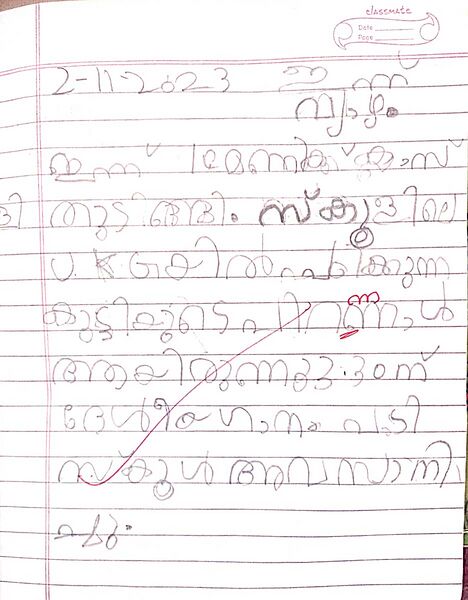 classmate
Date
Page
2-11-2023 ഇന്ന്
വ്യാഴം
ഇന്ന് 1 മണിക്ക് ക്ലാസ്
തുടങ്ങി. സ്കൂളിലെ
U.K.Gയിൽ പഠിക്കുന്ന
കുട്ടിയുടെ പിറന്നാൾ
ന്ന
ആയിരുന്നു 3:30ന്
ദേശീയഗാനം പാടി
സ്കൂൾ അവസാനി
ച്ചു.